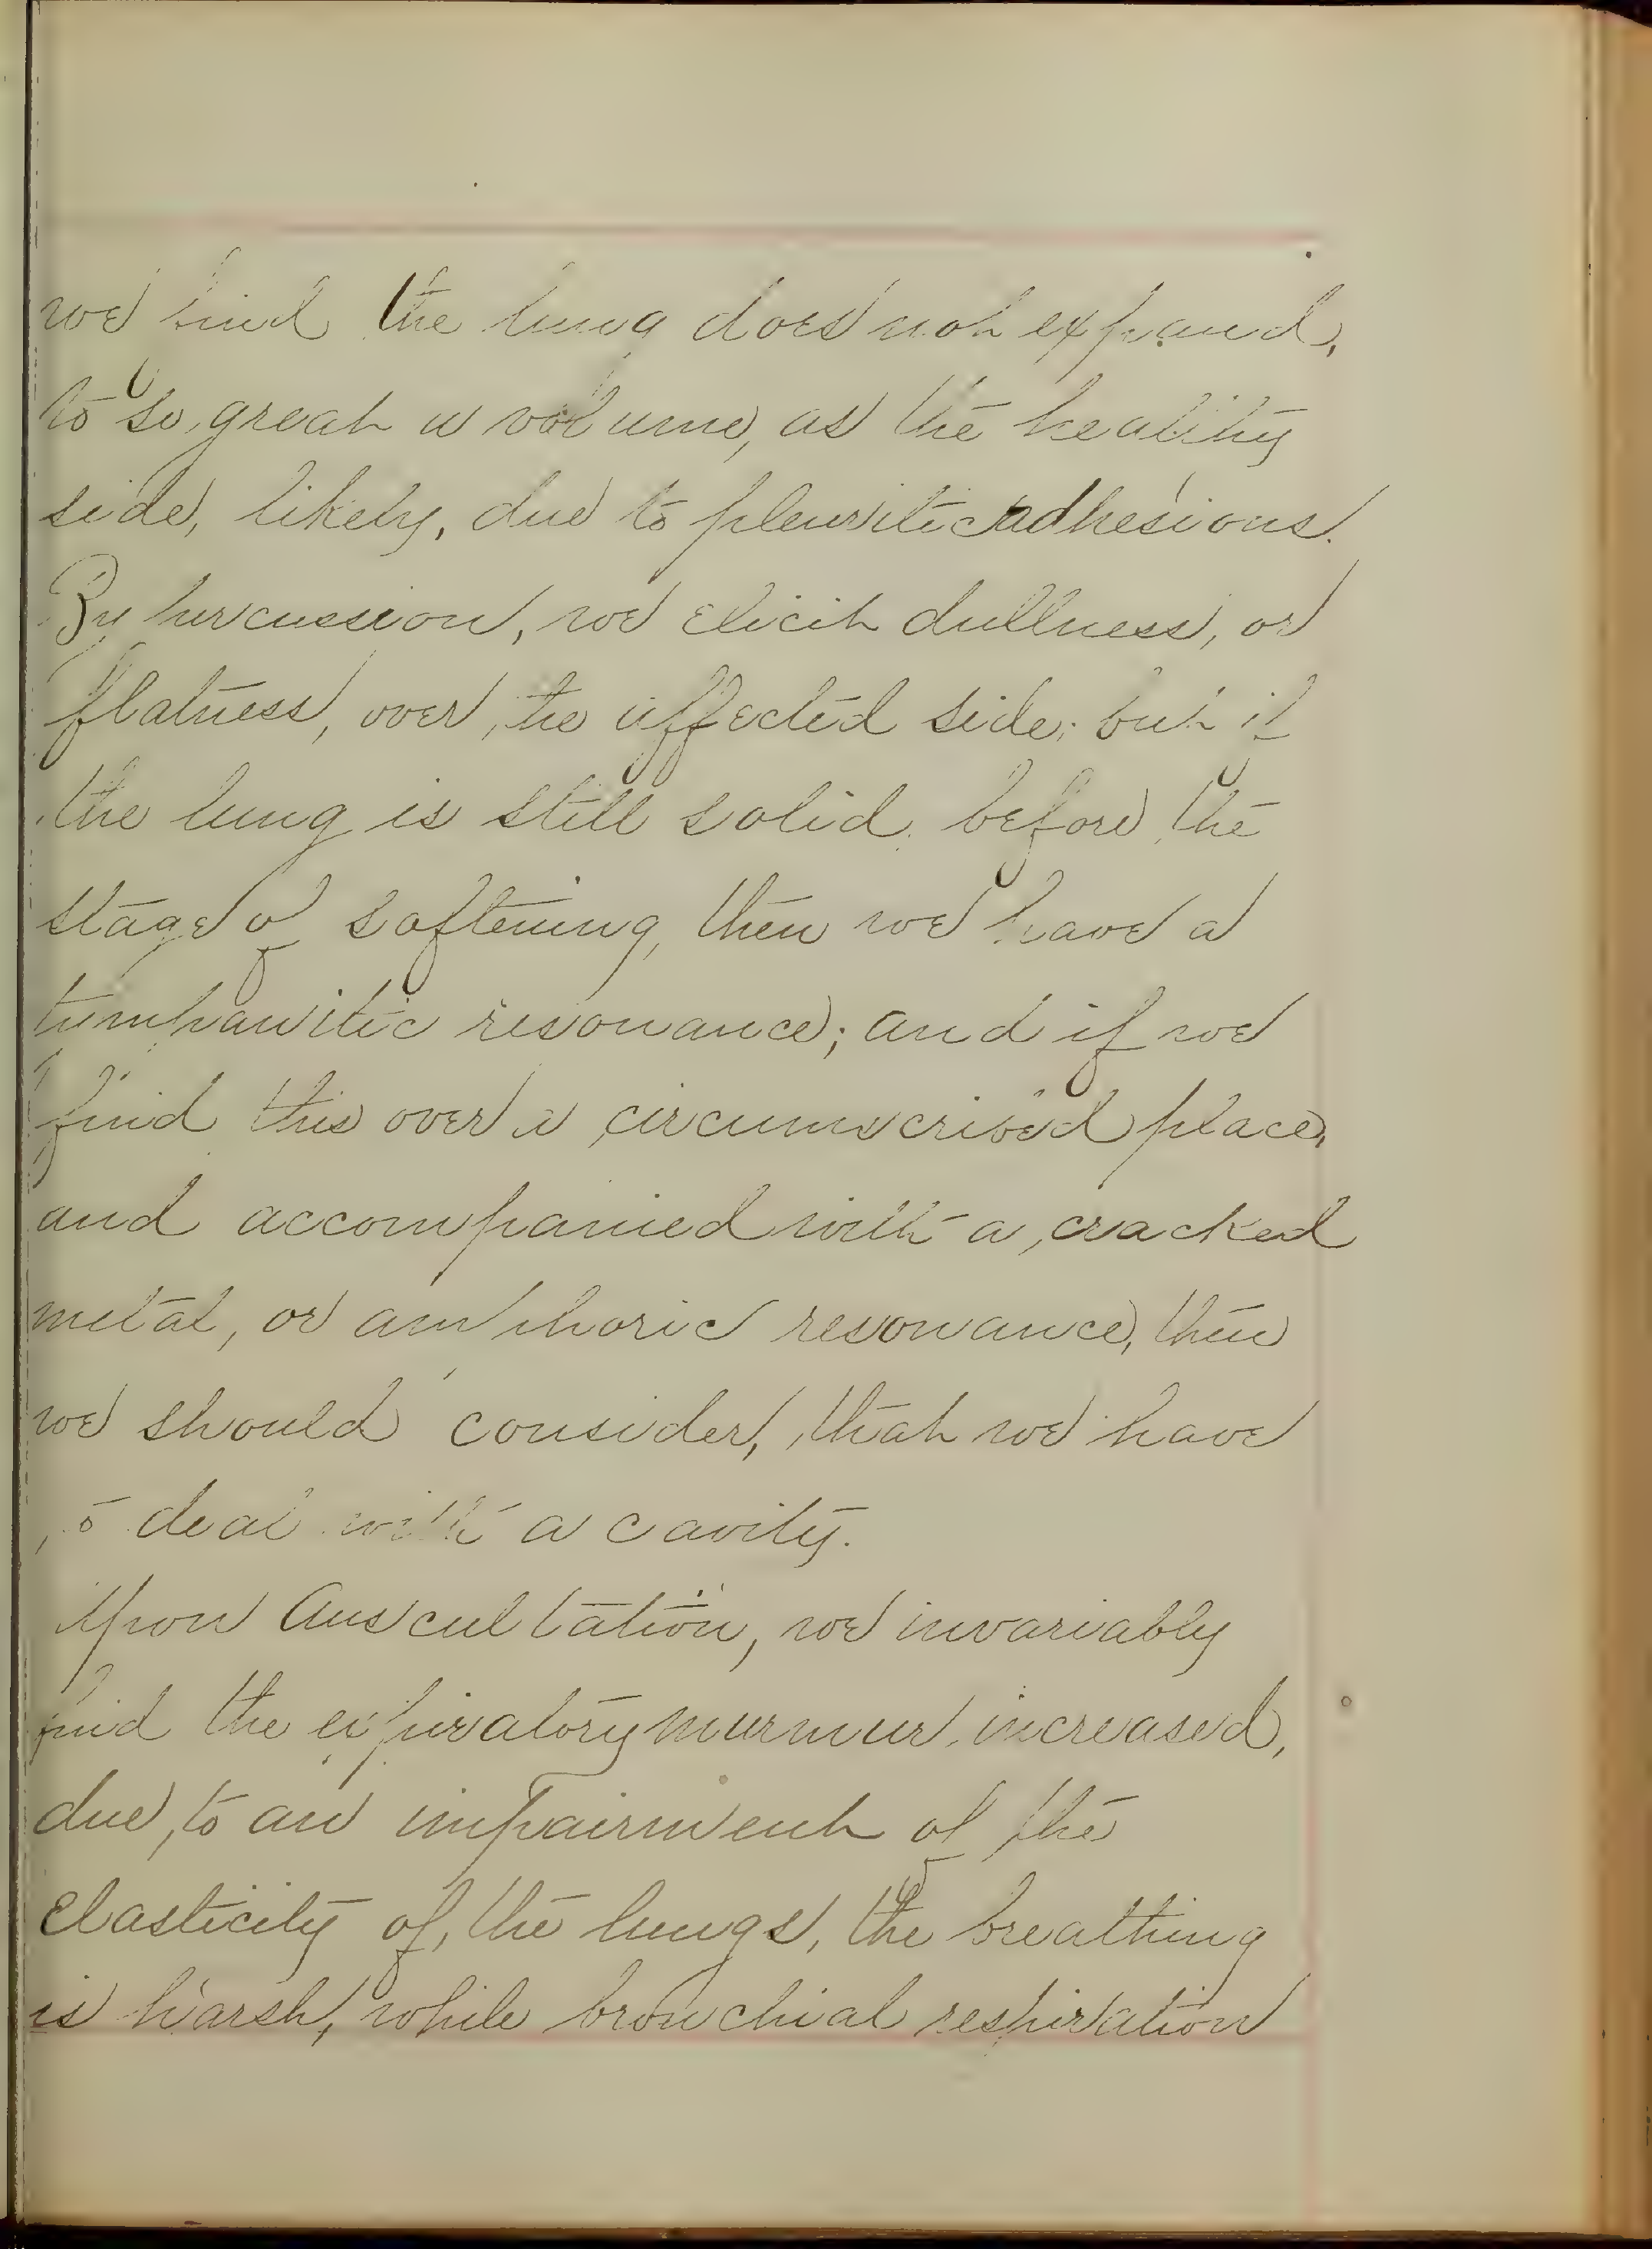 we find the lung does not expand,
to so, great a volume, as the healthy
side, likely, due to pleuritic adhesions.
By percussion, we elicit dullness, or
flatness, over, the affected side; but if
the lung is still solid, before, the
stage of softening, then we have a
tympanitic resonance; and if we
find this over a circumscribed place,
and accompanied with a, cracked
metal, or amphoric resonance, then
we should consider, that we have
to deal with a cavity.
Upon Auscultation, we invariably
find the expiratory murmur, increased,
due, to an impairment of the
elasticity of, the lungs, the breathing
is harsh, while bronchial respiration